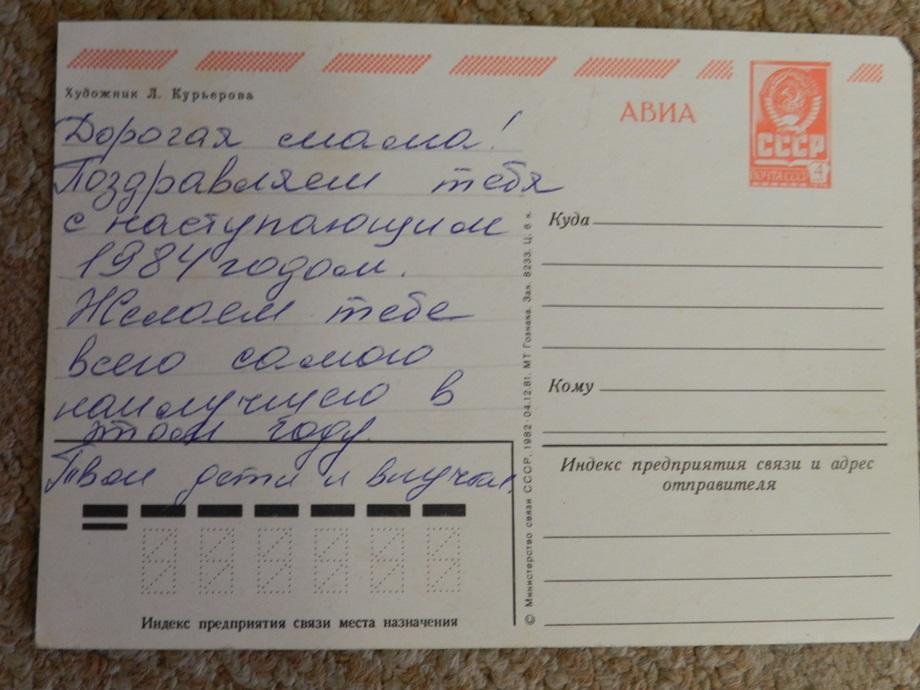 Художник Л. Курьерова
АВИА
СССР
ПОЧТА СССР
4
Дорогая мама!
Поздравляем тебя
с наступающим
1984 годом.
Желаем тебе
всего самого
наилучшего в
этом году.
Твои дети и внучки.
Куда
Кому
Индекс предприятия связи и адрес
отправителя
Индекс предприятия связи места назначения
© Министерство связи СССР, 1982 · 04.12.81. МТ Гознака. Зак. 8233. Ц. 6 к.